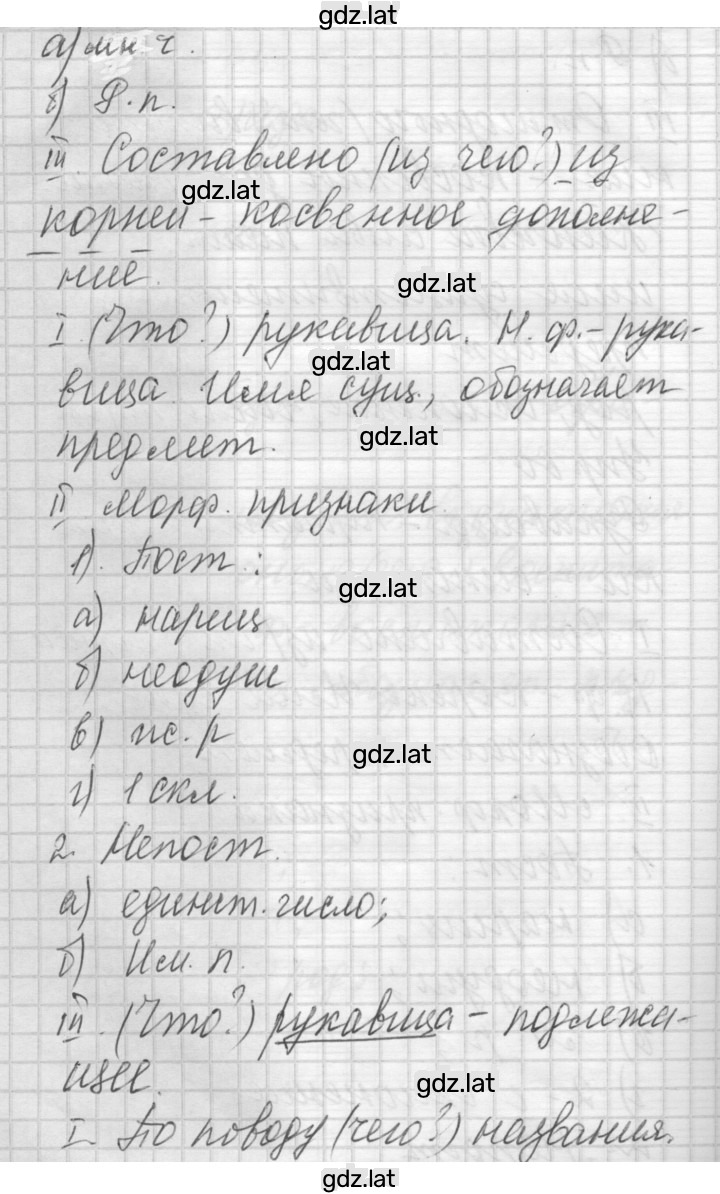 gdz.lat
а) мн. ч.
б) Р. п.
III. Составлено (из чего?) из
gdz.lat
корней - косвенное дополне-
ние.
gdz.lat
I. (Что?) рукавица. Н. ф. - рука-
gdz.lat
вица. Имя сущ., обозначает
gdz.lat
предмет.
II Морф. признаки
1). Пост.:
gdz.lat
а) нариц
б) неодуш
в) ж. р
gdz.lat
г) 1 скл.
2. Непост.
а) единст. число;
б) Им. п.
III. (Что?) рукавица - подлежа-
щее.
gdz.lat
I. По поводу (чего?) названия.
gdz.lat